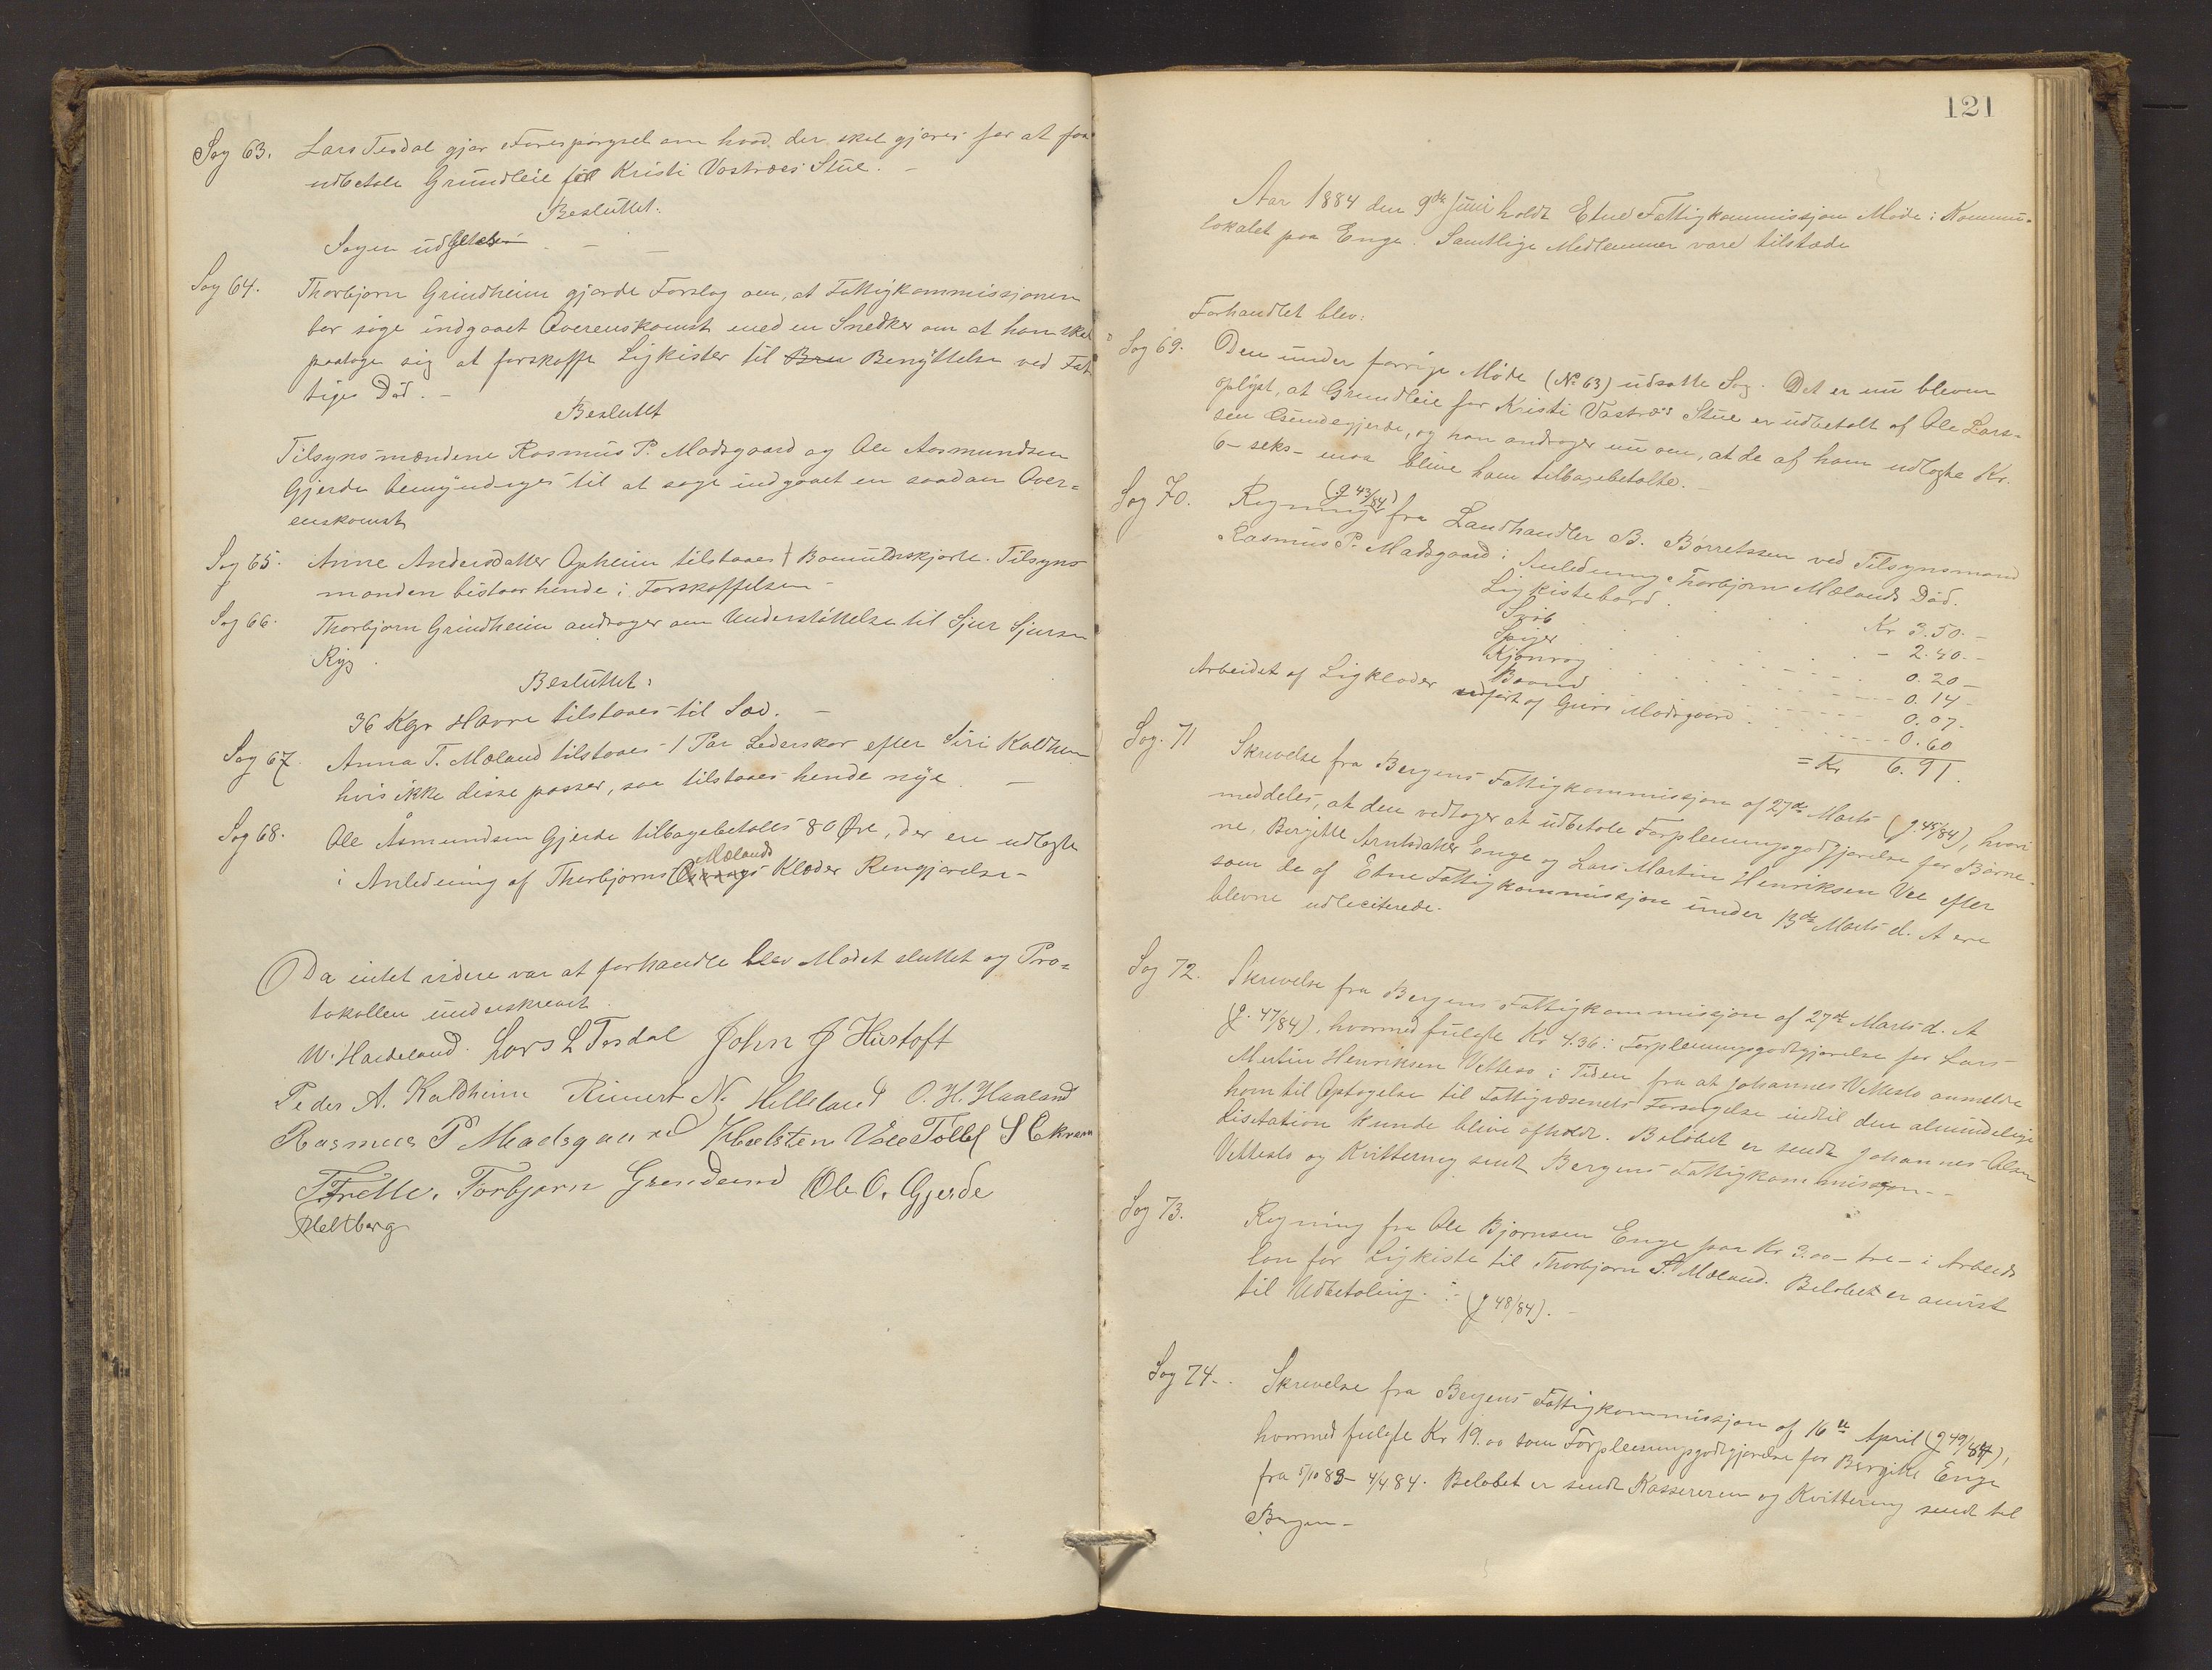 Sag 63. Lars Tesdal gjør Forespørgsel om hvad der skal gjøres for at faa
udbetale Grundleie for Kristi Vastraes Stue. -
Besluttet:
Sagen udsættes
Sag 64. Thorbjørn Grindheim gjorde Forslag om, at Fattigkommissjonen
bør søge indgaaet Overenskomst med en Snedker om at han skal
paatage sig at forskaffe Ligkister til Benyttelse ved Fat
tiges Død. -
Besluttet
Tilsynsmændene Rasmus P. Madsgaard og Ole Aasmundsen
Gjerde bemyndiges til at søge indgaaet en saadan Over=
enskomst
Sag 65. Anne Andersdatter Opheim tilstaaes 1 Bomuldsskjorte. Tilsyns
manden bistaar hende i Forskaffelsen
Sag 66. Thorbjørn Grindheim andrager om Understøttelse til Sjur Sjursen
Ryg.
Besluttet:
36 Kgr Havre tilstaaes til Sæd. -
Sag 67. Anna T. Mæland tilstaaes 1 Par Lædersko efter Siri Kaldheim
hvis ikke disse passer, saa tilstaaes hende nye. -
Sag 68. Ole Åsmundsen Gjerde tilbagebetales 80 Øre, der ere udlagte
Mælands
i Anledning af Thorbjørns Klæder Rengjørelse -
Da intet videre var at forhandle blev Mødet sluttet og Pro=
tokollen underskrevet.
W. Hardeland. Lars L Tesdal John J Hustoft
Peder A. Kaldheim Rimert N. Helleland O. H. Haaland
Rasmus P Madsgaard Halsten Vee Tollef S Ekrene
T Frette. Torbjørn Grindeim Ole O. Gjerde
Heltberg
121
Aar 1884 den 9de Juni holdt Etne Fattigkommissjon Møde i Kommu-
lokalet paa Enge. Samtlige Medlemmer vare tilstæde
Forhandlet blev:
Sag 69. Den under forrige Møde (No 63) udsatte Sag. Det er nu bleven
oplyst, at Grundleie for Kristi Vastraes Stue er udbetalt af Ole Lars=
sen Osundegjerde, og han andrager nu om, at de af ham udlagte Kr.
6 - seks - maa blive ham tilbagebetalte. -
(J 43/84)
Sag 70. Regning fra Landhandler B. Børretzen ved Tilsynsmand
Rasmus P. Madsgaard i Anledning Thorbjørn Mælands Død.
Ligkistebord . . . Kr 3.50. -
Svøb . . . - 2.40. -
Spiger . . . 0.20 -
Kjønrøg . . . 0.14 -
Baand . . . 0.07. -
Arbeidet af Ligklæder udført af Guri Madsgaard . . . 0.60
= Kr 6.91.
Sag. 71 Skrivelse fra Bergens Fattigkommissjon af 27de Marts (J. 45/84), hvori
meddeles, at den vedtager at udbetale Forpleiningsgodtgjørelse for Børne-
ne, Birgitte Arntsdatter Enge og Lars Martin Henriksen Vee efter
som de af Etne Fattigkommissjon under 13de Marts d. A ere
blevne udliciterede.
Sag 72. Skrivelse fra Bergens Fattigkommissjon af 27de Marts d. A
(J. 47/84), hvormed fulgte Kr 4.36 i Forpleiningsgodtgjørelse for Lars
Martin Henriksen Vetteslo i Tiden fra at Johannes Vetteslo anmeldte
ham til Optagelse til Fattigvæsenets Forsørgelse indtil den almindelige
Lisitation kunde blive afholdt. Beløbet er sendt Johannes Olsen
Vetteslo og Kvittering sendt Bergens Fattigkommissjon. -
Sag 73. Regning fra Ole Bjørnsen Enge paa Kr 3.00 - tre - i Arbeids
løn for Ligkiste til Thorbjørn T. Mæland. Beløbet er anvist
til Udbetaling. - (J 48/84). -
Sag 74. Skrivelse fra Bergens Fattigkommissjon af 16de April (J 49/84),
hvormed fulgte Kr 19.00 som Forpleiningsgodtgjørelse for Birgitte Enge
fra 5/10 83 - 4/4 84. Beløbet er sendt Kassereren og Kvittering sendt til
Bergen -